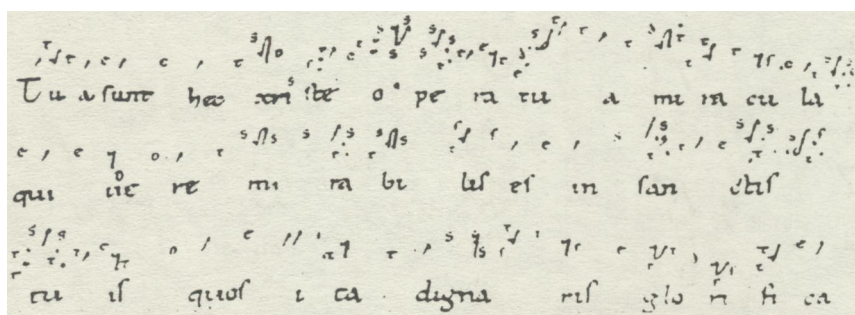 Tu a sunt hec xpi ste o pe ra tu a mi ra cu la
qui ue re mi ra bi lis es in san ctis
tu is quos i ta digna ris glo ri fi ca